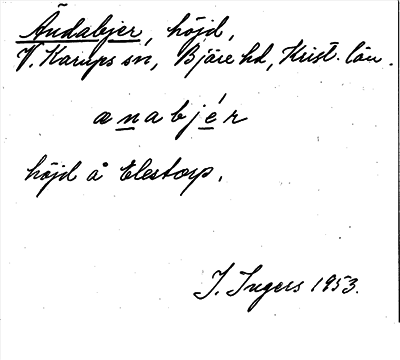 Ändabjer, höjd,
V. Karups sn, Bjäre hd, Krist. län.
anabjér
höjd å Elestorp.
I. Ingers 1953.